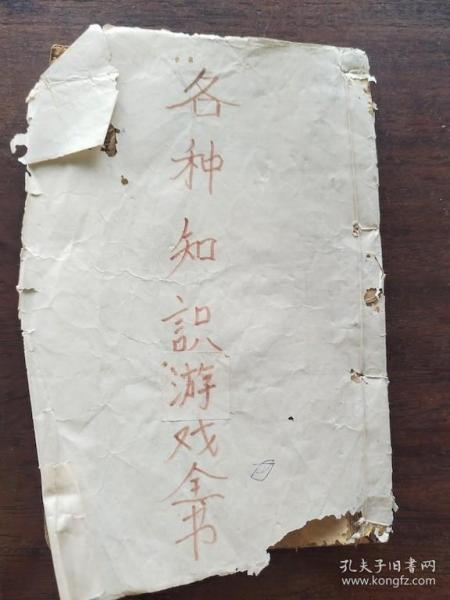 各种知識游戏全书
孔夫子旧书网
www.kongfz.com